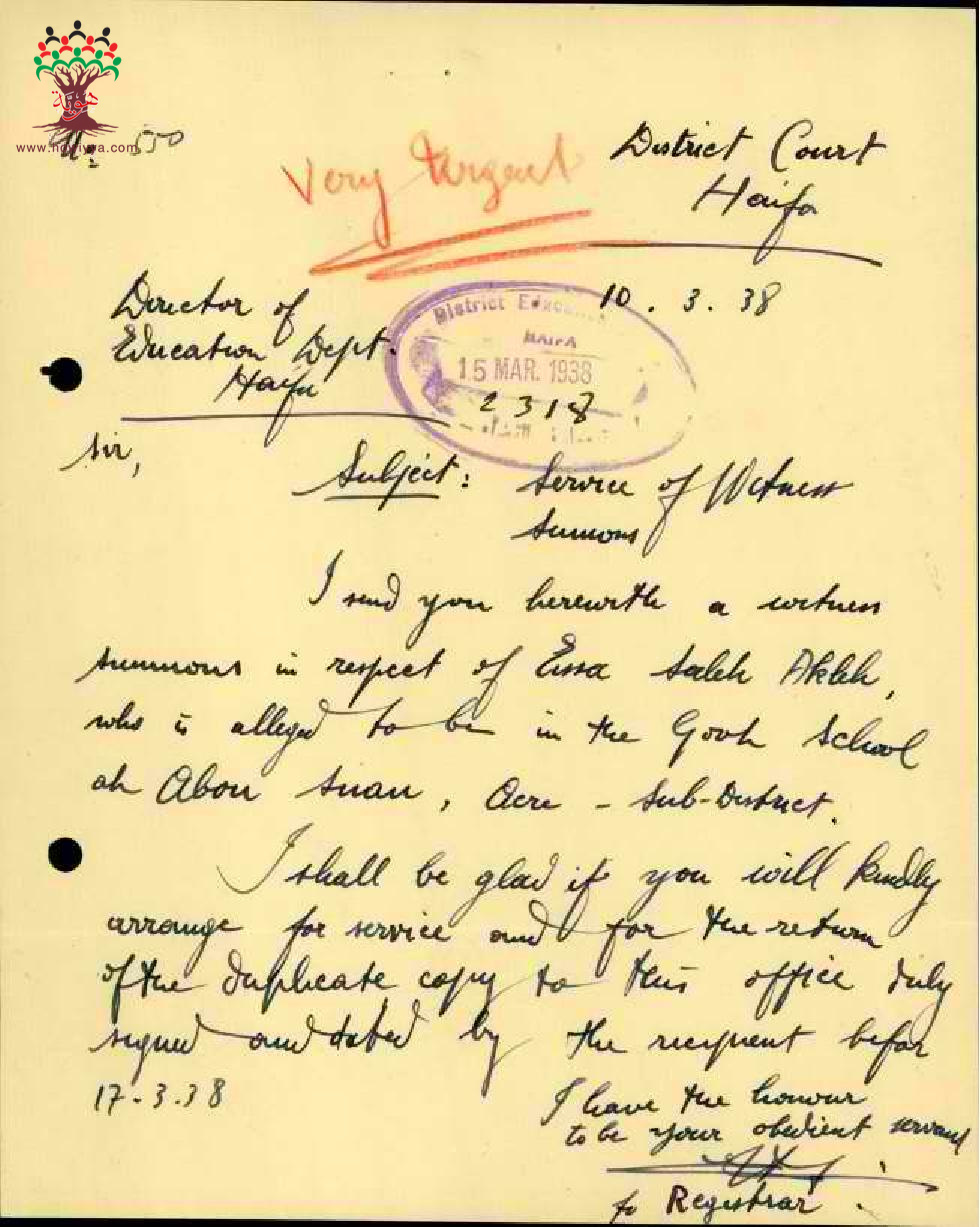 هوية
www.howiyya.com
550
Very Urgent
District Court
Haifa
10. 3. 38
Director of
Education Dept.
Haifa
District
HAIFA
15 MAR. 1938
2318
Sir,
Subject: Service of Witness
Summons
I send you herewith a witness
summons in respect of Eissa Saleh Akleh,
who is alleged to be in the Govt School
at Abou Snan, Acre - Sub-District.
I shall be glad if you will kindly
arrange for service and for the return
of the duplicate copy to this office duly
signed and dated by the recipient before
17-3.38
I have the honour
to be your obedient servant
Registrar